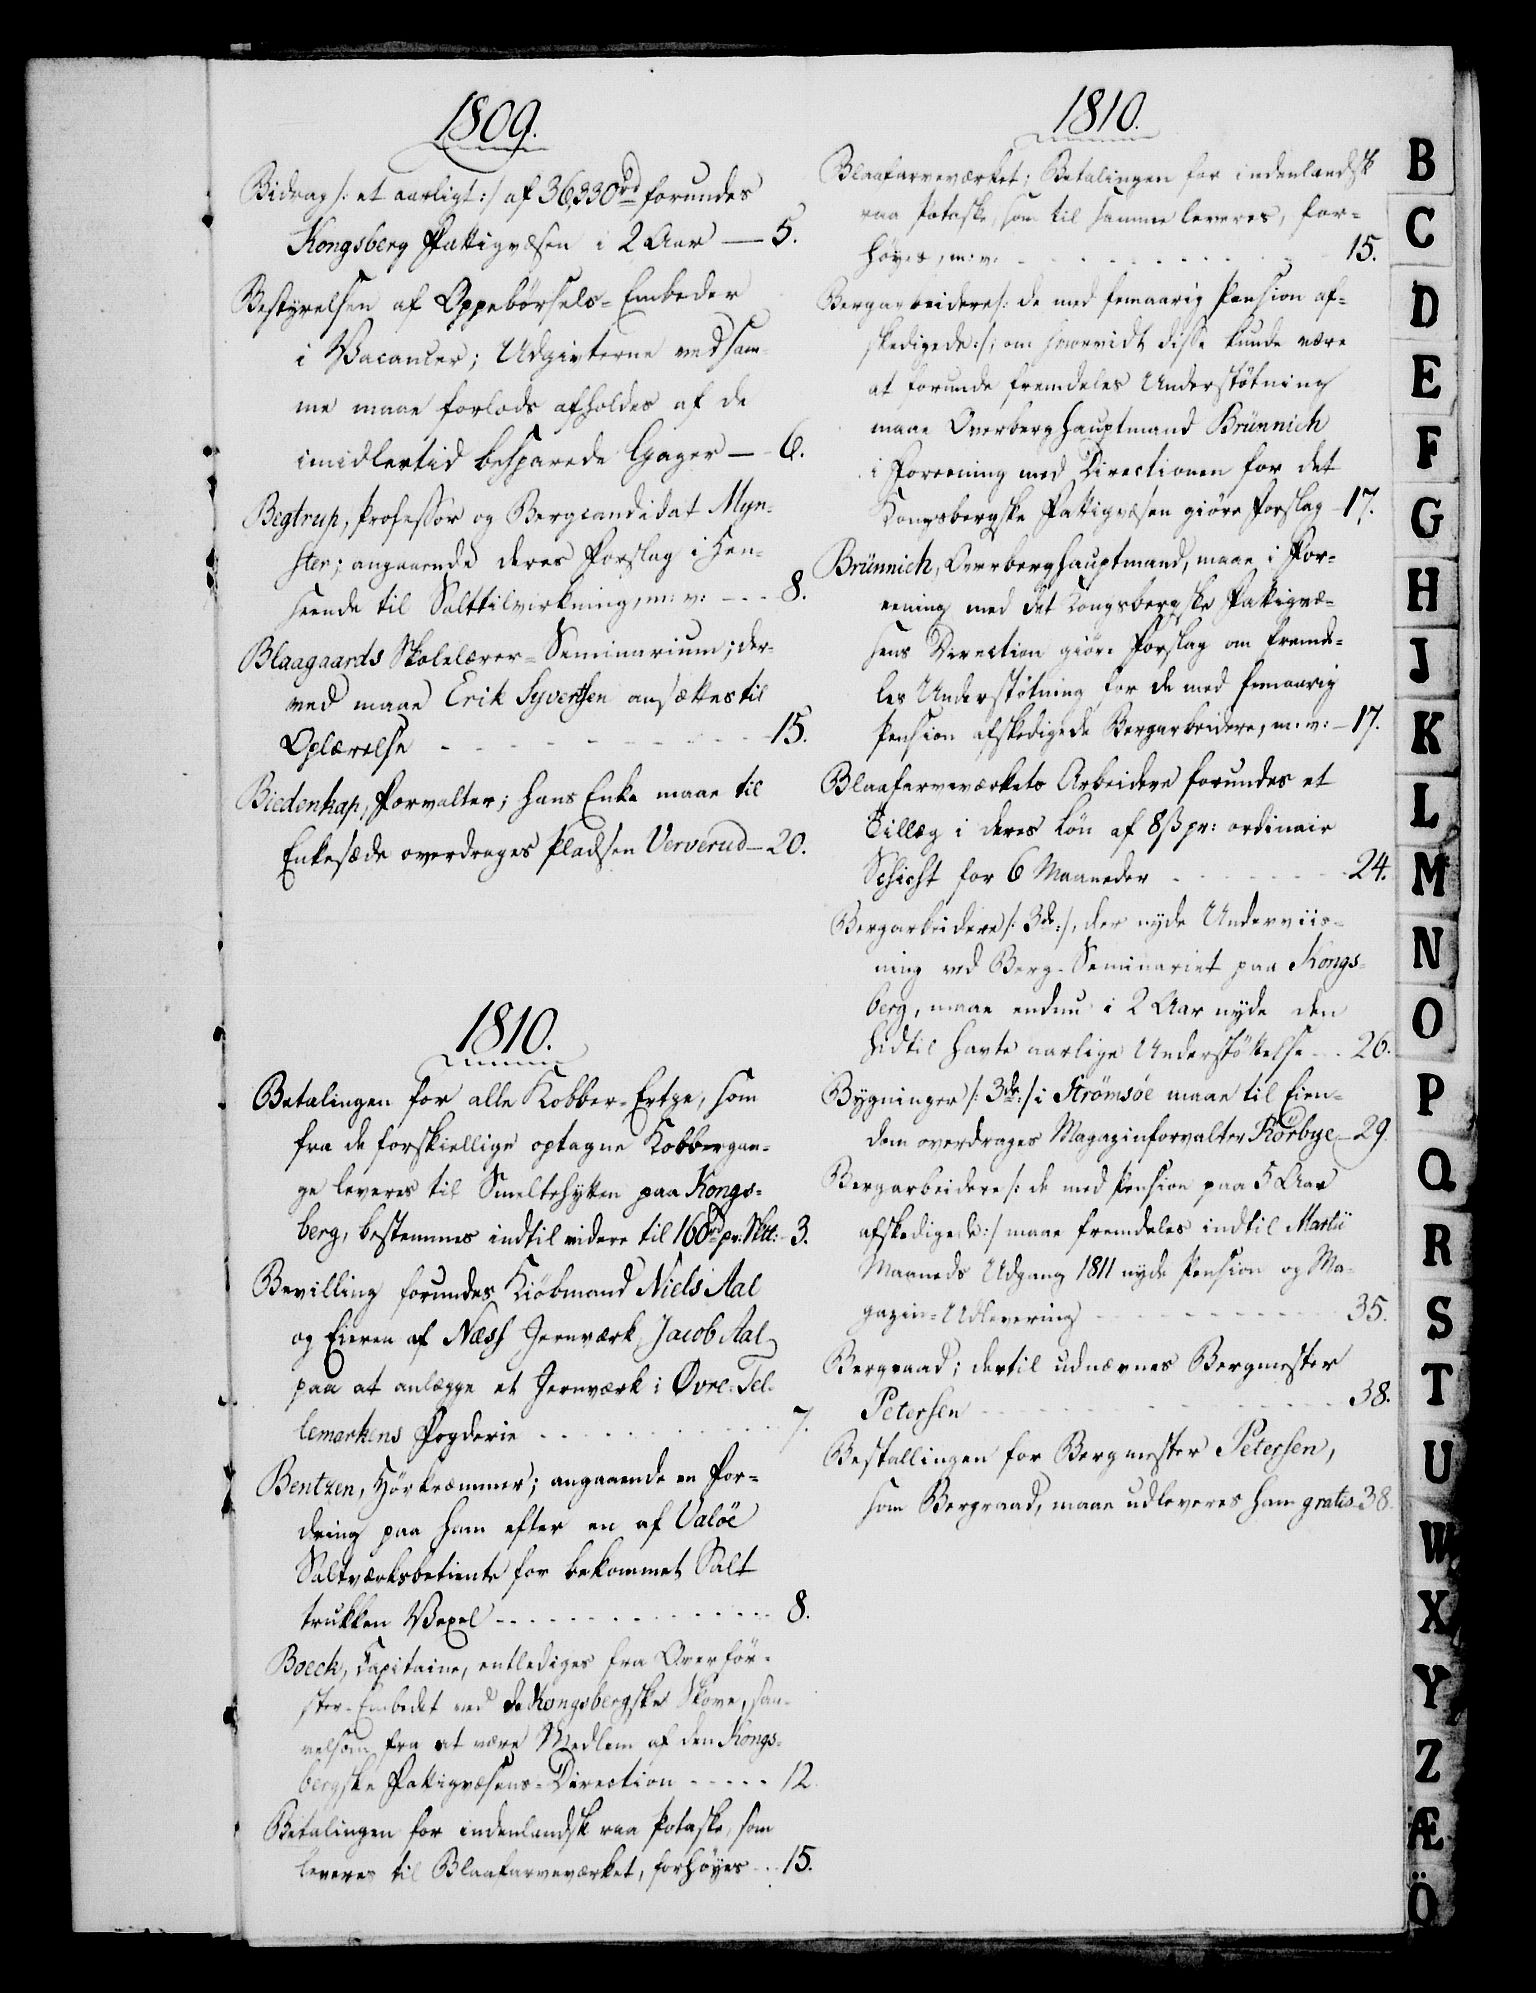 1809.
Bidrag /: et aarligt :/ af 36,330rd forundes
Kongsberg Fattigvæsen i 2 Aar — 5.
Bestyrelsen af Oppebörsels-Embeder
i Vacancer; Udgivterne ved sam-
me maae forlods afholdes af de
imidlertid besparede Gager — 6.
Begtrup, Professor og Bergcandidat Myn-
ster; angaaende deres Forslag i Hen-
seende til Salttilvirkning, m: v: - - - 8.
Blaagaards Skolelærer-Seminarium; der-
ved maae Erik Syvertsen ansættes til
Oplærelse - - - 15.
Biedenkap, Forvalter; hans Enke maae til
Enkesæde overdrages Pladsen Ververud — 20.
1810.
Betalingen for alle Kobber-Ertze, som
fra de forskiellige optagne Kobbergan-
ge leveres til Smeltehytten paa Kongs-
berg, bestemmes indtil videre til 160rd pr. Sktt: - 3.
Bevilling forundes Kiöbmand Niels Aal
og Eieren af Næss Jernværk Jacob Aal
paa at anlægge et Jernværk i Övre-Tel-
lemarkens Fogderie - - - 7.
Bentzen, Hörkræmmer; angaaende en For-
dring paa ham efter en af Valöe
Saltværksbetiente for bekommet Salt
trukken Vexel - - - 8.
Boeck, Capitaine, entlediges fra Overför-
ster-Embedet ved de Kongsbergske Skove, saa-
velsom fra at være Medlem af den Kongs-
bergske Fattigvæsens-Direction - - - 12
Betalingen for indenlandsk raa Potaske, som
leveres til Blaafarveværket, forhöyes - - 15.
1810.
Blaafarveværket; Betalingen for indenlandsk
raa Potaske, som til samme leveres, for-
höyes, m: v: - - - 15.
Bergarbeidere /: de med femaarig Pension af-
skedigede :/; om hvorvidt disse kunde være
at forunde fremdeles Understötning
maae Overberghauptmand Brünnich
i Forening med Directionen for det
Kongsbergske Fattigvæsen giöre Forslag — 17.
Brünnich, Overberghauptmand, maae i For-
eening med det Kongsbergske Fattigvæ-
sens Direction giöre Forslag om fremde-
les Understötning for de med femaarig
Pension afskedigede Bergarbeidere, m: v: — 17.
Blaafarveværkets Arbeidere forundes et
Tillæg i deres Lön af 8 ß pr: ordinair
Schicht for 6 Maaneder - - - 24.
Bergarbeidere /: 3de :/, der nyde Underviis-
ning ved Berg-Seminariet paa Kongs-
berg, maae endnu i 2 Aar nyde den
hidtil havte aarlige Understöttelse - - 26.
Bygninger /: 3de :/ i Strömsöe maae til Eien-
dom overdrages Magazinforvalter Körbye — 29.
Bergarbeidere /: de med Pension paa 5 Aar
afskedigede :/ maae fremdeles indtil Martii
Maaneds Udgang 1811 nyde Pension og Ma-
gazin-Udlevering - - - 35.
Bergraad; dertil udnævnes Bergmester
Petersen - - - 38.
Bestallingen for Bergmester Petersen,
som Bergraad, maae udleveres ham gratis - 38.
B
C
D
E
F
G
H
J
K
L
M
N
O
P
Q
R
S
T
U
W
X
Y
Z
Æ
Ö